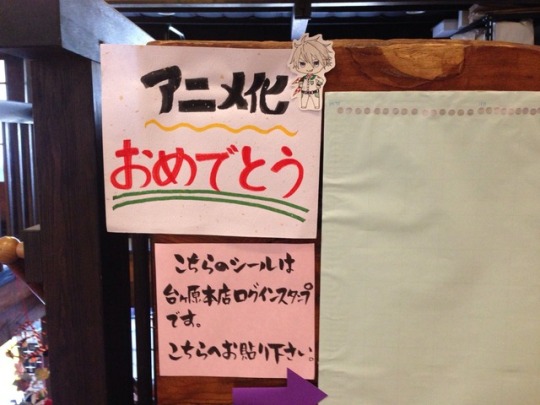 アニメ化
おめでとう
こちらのシールは
台ヶ原本店ログインスタンプ
です。
こちらへお貼り下さい。